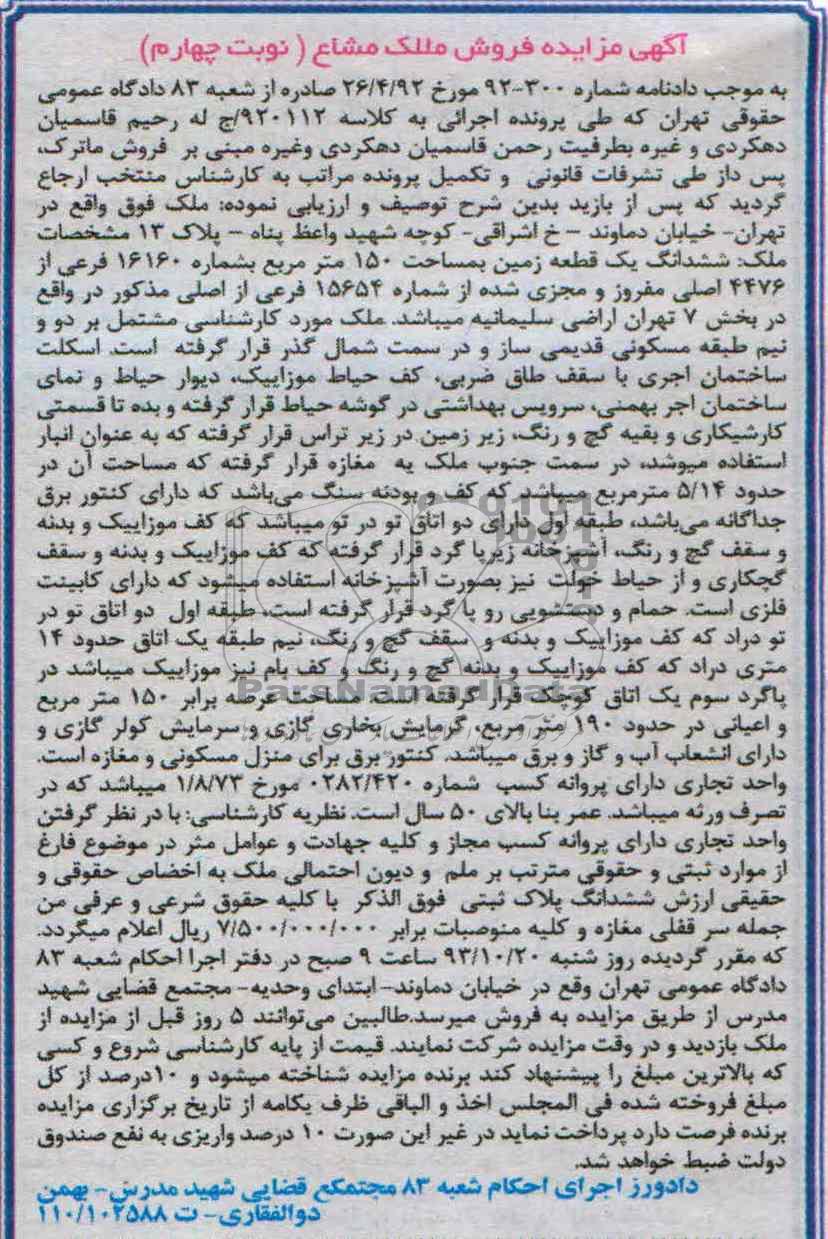 آگهی مزایده فروش مللک مشاع ( نوبت چهارم)
به موجب دادنامه شماره ۳۰۰-۹۲ مورخ ۲۶/۴/۹۲ صادره از شعبه ۸۳ دادگاه عمومی
حقوقی تهران که طی پرونده اجرائی به کلاسه ۹۲۰۱۱۲/ج له رحیم قاسمیان
دهکردی و غیره بطرفیت رحمن قاسمیان دهکردی وغیره مبنی بر فروش ماترک،
پس داز طی تشرفات قانونی و تکمیل پرونده مراتب به کارشناس منتخب ارجاع
گردید که پس از بازید بدین شرح توصیف و ارزیابی نموده: ملک فوق واقع در
تهران- خیابان دماوند – خ اشراقی- کوچه شهید واعظ پناه – پلاک ۱۳ مشخصات
ملک: ششدانگ یک قطعه زمین بمساحت ۱۵۰ متر مربع بشماره ۱۶۱۶۰ فرعی از
۴۴۷۶ اصلی مفروز و مجزی شده از شماره ۱۵۶۵۴ فرعی از اصلی مذکور در واقع
در بخش ۷ تهران اراضی سلیمانیه میباشد. ملک مورد کارشناسی مشتمل بر دو و
نیم طبقه مسکونی قدیمی ساز و در سمت شمال گذر قرار گرفته است. اسکلت
ساختمان اجری با سقف طاق ضربی، کف حیاط موزاییک، دیوار حیاط و نمای
ساختمان اجر بهمنی، سرویس بهداشتی در گوشه حیاط قرار گرفته و بده تا قسمتی
کارشیکاری و بقیه گچ و رنگ، زیر زمین در زیر تراس قرار گرفته که به عنوان انبار
استفاده میوشد، در سمت جنوب ملک یه مغازه قرار گرفته که مساحت آن در
حدود ۵/۱۴ مترمربع میباشد که کف و بودنه سنگ می‌باشد که دارای کنتور برق
جداگانه می‌باشد، طبقه اول دارای دو اتاق تو در تو میباشد که کف موزاییک و بدنه
و سقف گچ و رنگ، آشپزخانه زیرپا گرد قرار گرفته که کف موزاییک و بدنه و سقف
گچکاری و از حیاط خولت نیز بصورت آشپزخانه استفاده میشود که دارای کابینت
فلزی است. حمام و دستشویی رو پا گرد قرار گرفته است، طبقه اول دو اتاق تو در
تو دراد که کف موزاییک و بدنه و سقف گچ و رنگ، نیم طبقه یک اتاق حدود ۱۴
متری دراد که کف موزاییک و بدنه گچ و رنگ و کف بام نیز موزاییک میباشد در
پاگرد سوم یک اتاق کوچک قرار گرفته است. مساحت عرصه برابر ۱۵۰ متر مربع
و اعیانی در حدود ۱۹۰ متر مربع، گرمایش بخاری گازی و سرمایش کولر گازی و
دارای انشعاب آب و گاز و برق میباشد. کنتور برق برای منزل مسکونی و مغازه است.
واحد تجاری دارای پروانه کسب شماره ۰۲۸۲/۴۲۰ مورخ ۱/۸/۷۳ میباشد که در
تصرف ورثه میباشد. عمر بنا بالای ۵۰ سال است. نظریه کارشناسی: با در نظر گرفتن
واحد تجاری دارای پروانه کسب مجاز و کلیه جهادت و عوامل مثر در موضوع فارغ
از موارد ثبتی و حقوقی مترتب بر ملم و دیون احتمالی ملک به اخضاص حقوقی و
حقیقی ارزش ششدانگ پلاک ثبتی فوق الذکر با کلیه حقوق شرعی و عرفی من
جمله سر قفلی مغازه و کلیه منوصبات برابر ۷/۵۰۰/۰۰۰/۰۰۰ ریال اعلام میگردد.
که مقرر گردیده روز شنبه ۹۳/۱۰/۲۰ ساعت ۹ صبح در دفتر اجرا احکام شعبه ۸۳
دادگاه عمومی تهران وقع در خیابان دماوند- ابتدای وحدیه- مجتمع قضایی شهید
مدرس از طریق مزایده به فروش میرسد.طالبین می‌توانند ۵ روز قبل از مزایده از
ملک بازدید و در وقت مزایده شرکت نمایند. قیمت از پایه کارشناسی شروع و کسی
که بالاترین مبلغ را پیشنهاد کند برنده مزایده شناخته میشود و ۱۰درصد از کل
مبلغ فروخته شده فی المجلس اخذ و الباقی ظرف یکامه از تاریخ برگزاری مزایده
برنده فرصت دارد پرداخت نماید در غیر این صورت ۱۰ درصد واریزی به نفع صندوق
دولت ضبط خواهد شد.
دادورز اجرای احکام شعبه ۸۳ مجتمکع قضایی شهید مدرس - بهمن
ذوالفقاری- ت ۱۱۰/۱۰۲۵۸۸
ParsNamadData